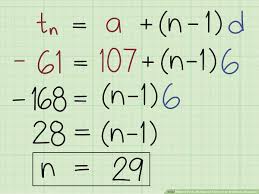 tn = a + (n-1)d
- 61 = 107 + (n-1)6
-168 = (n-1)6
28 = (n-1)
n = 29